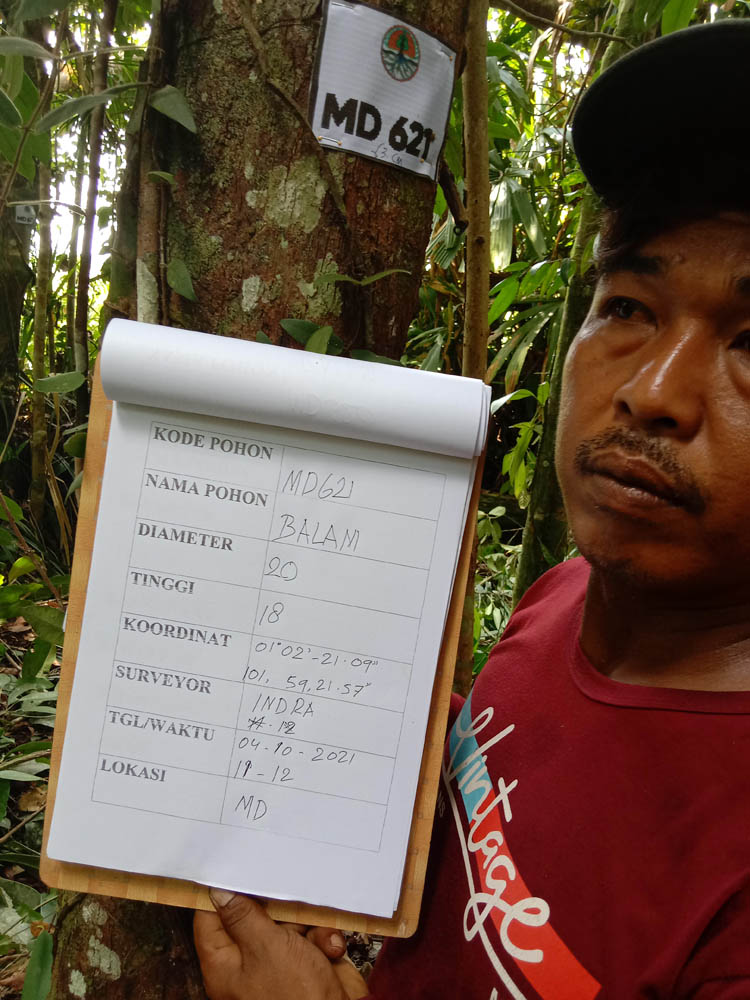 MD 621
63 cm
KODE POHON MD621
NAMA POHON BALAM
DIAMETER 20
TINGGI 18
KOORDINAT 01°02'-21.09"
101, 59,21.57"
SURVEYOR INDRA
TGL/WAKTU 04-10-2021
11-12
LOKASI MD
Vintage